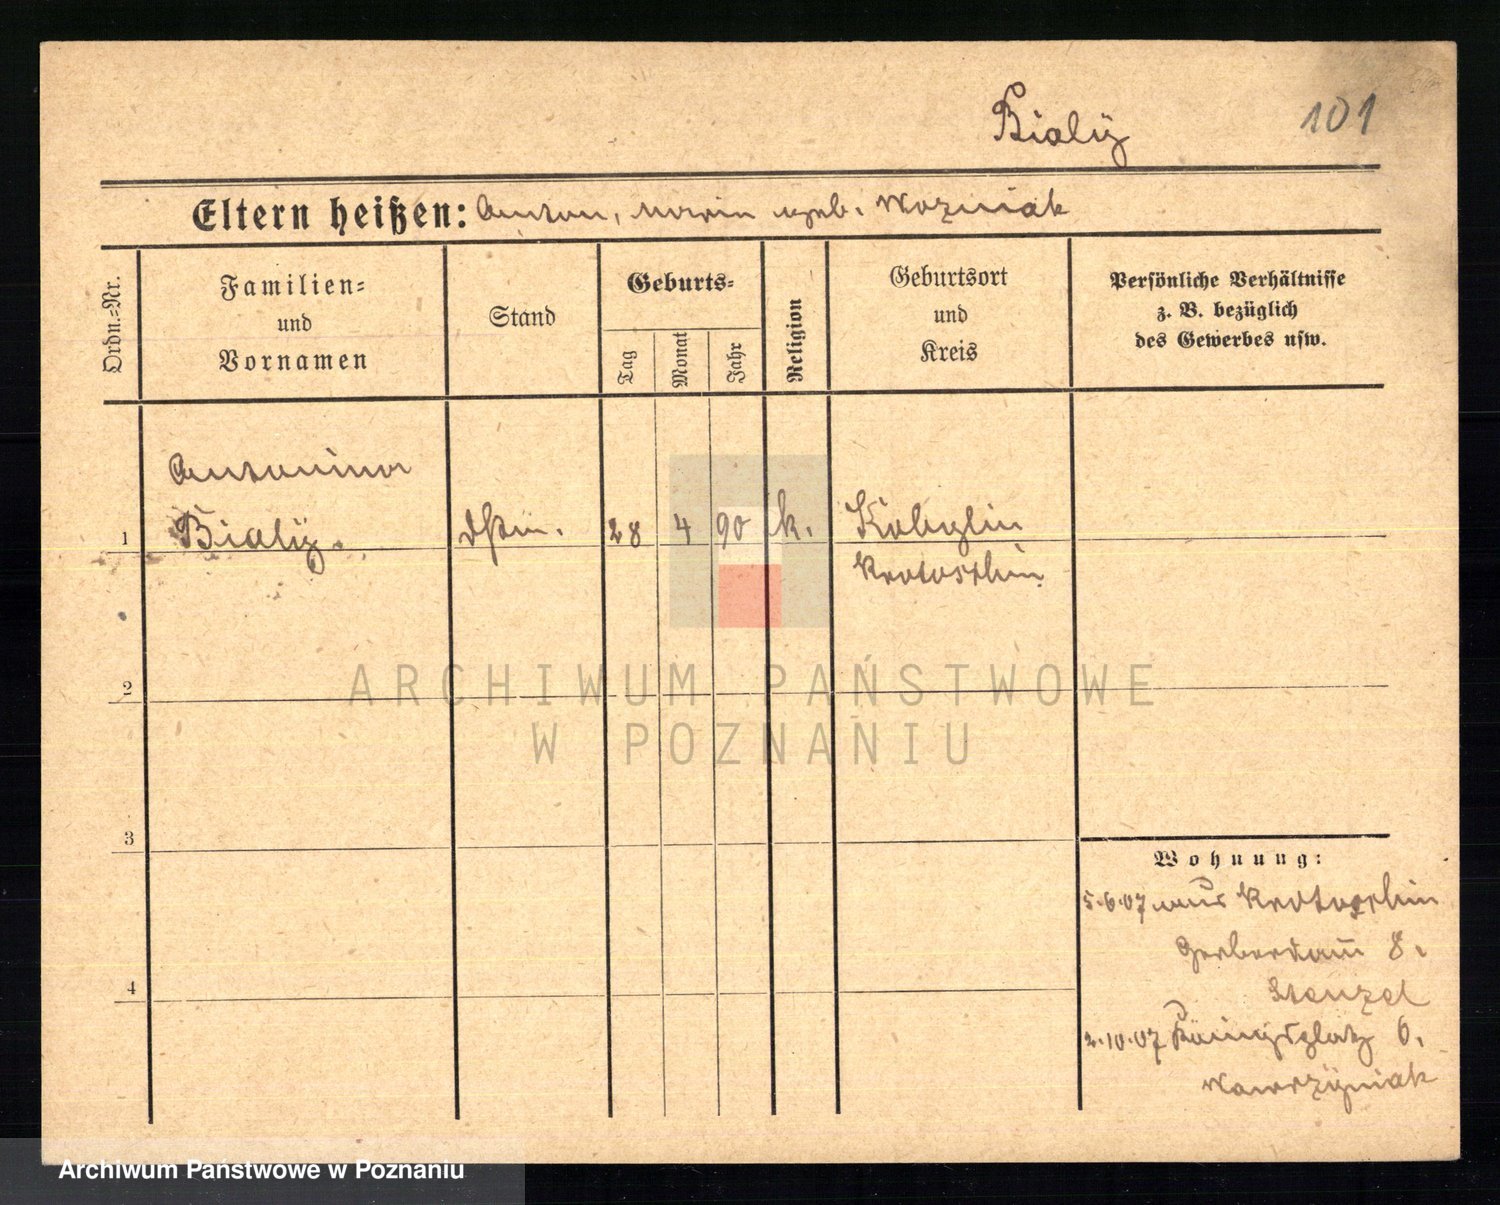 Bialÿ 101
Eltern heißen: Anton, Maria geb. Wozniak
Ordn.=Nr.
Familien=
und
Vornamen
Stand
Geburts=
Tag
Monat
Jahr
Religion
Geburtsort
und
Kreis
Persönliche Verhältnisse
z. B. bezüglich
des Gewerbes usw.
Antonina
1 Bialÿ. 28 4 90 k. Kobylin
Krotoschin
2
ARCHIWUM PAŃSTWOWE
W POZNANIU
3
Wohnung:
5.6.07 aus Krotoschin
Gerberdam̄ 8.
Stenzel
4
2.10.07 Königsplatz 6.
Wawrzÿniak
Archiwum Państwowe w Poznaniu